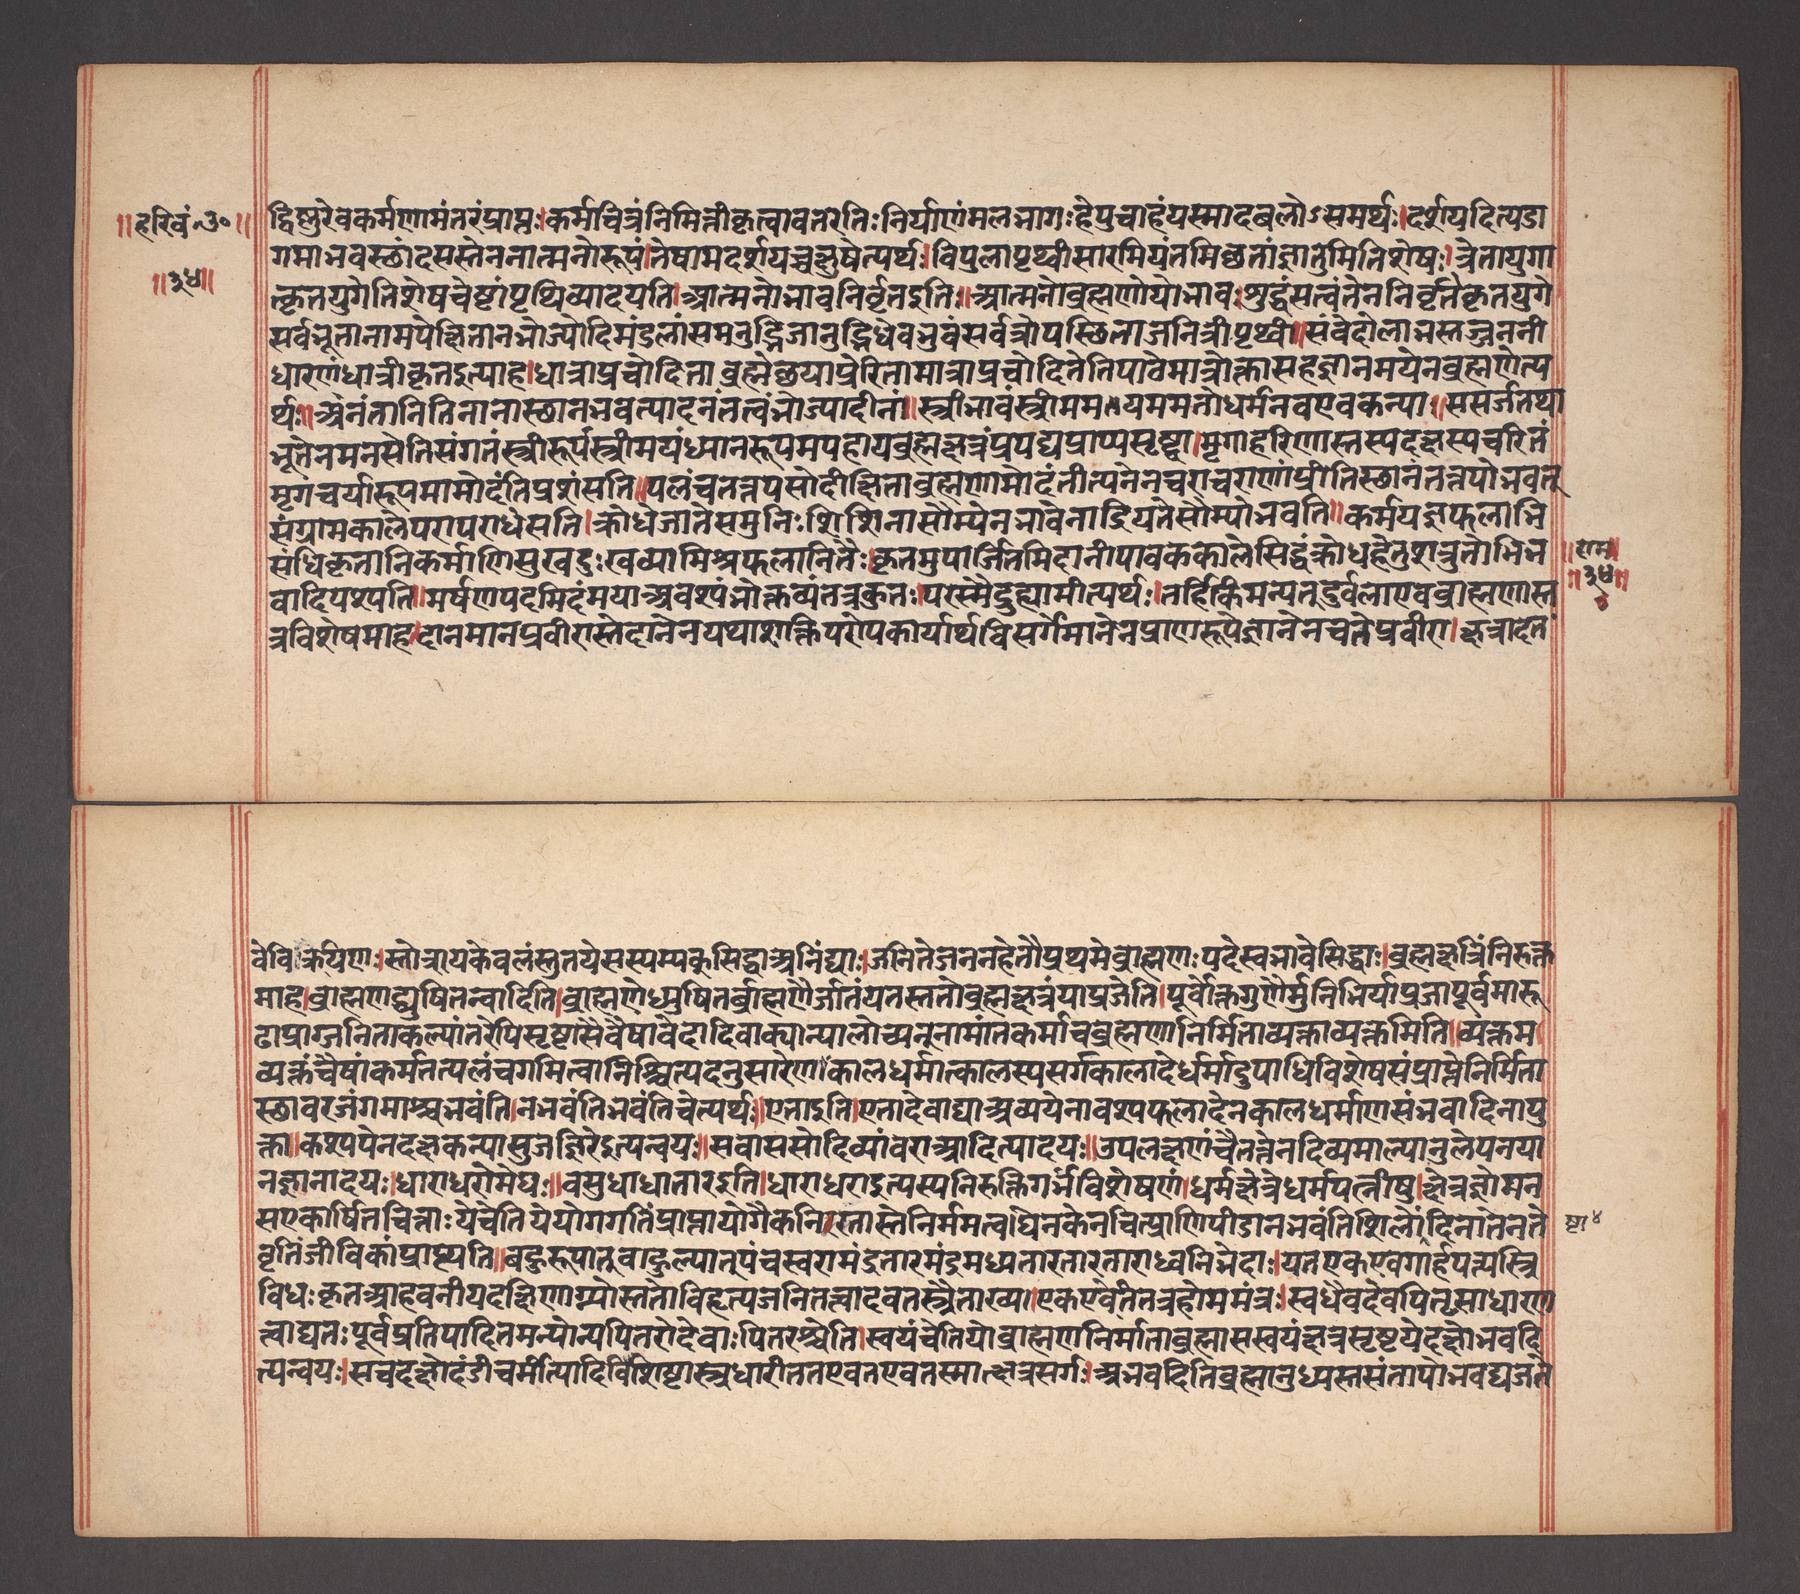 ॥हरिवं॰३॰॥
॥३५॥
द्विष्णुरेवकर्मणामंतरंप्राप्तः।कर्मचित्रंनिमित्तीकृत्वावतरेतिःनिर्याणंमलभागःहेपुचाहंयस्मादबलोऽसमर्थः।दर्शयदित्यडा
गमाभवस्छांदसस्तेननात्मनोरूपं।तेषामदर्शयच्चक्षुषेत्पर्थः।विपुलापृथ्वीसारमियंतमिछतांज्ञातुमितिशेषः।त्रेतायुगा
त्कृतयुगेतिशेषचेष्टांपृथिव्यादयति।आत्मनोभावनिर्वृतइतिः॥आत्मनोब्रह्मणोयोभावःशुद्धंसत्वंतेननिर्वृतेकृतयुगे
सर्वभूतानामपेक्षितानभोज्योदिमंडलांसमनुद्भिजानुद्भिधेवभुवंसर्वत्रोपस्छिताजनित्रीपृथ्वी॥संवेदोलाभस्तज्जननी
धारणंधात्रीकृतइत्याह।धात्राप्रचोदिता ब्रह्मेछयाप्रेरितामात्राप्रचोदितेतिपावेमात्रोक्तासहज्ञानमयेनब्रह्मणेत्प
र्थः॥अनंतानितिनानास्छानभवत्पादनंतत्वंभोज्यादीनां॥स्त्रीभावंस्त्रीमममयममतोधर्मनवएवकन्या॥ससर्जतथा
भूतेनमनसेतिसंगतंस्त्रीरूपंस्त्रीमयंध्यानरूपमपहायब्रह्मक्षत्रंप्रपद्यप्राप्यसृष्ट्वा।मृगाहरिणास्तस्पदक्षस्पचरितं
मृगचर्यारूपमामोदंतिप्रशंसति॥पलंचतन्नपसोदीक्षिताब्रह्मणमोदंतीत्पनेनचराचराणांप्रीतिस्छानंतन्नपोभवतू
संग्रामकालेपरापराधेसति।क्रोधेजातेसमुनिःशिशिनासौम्पेनभावेनाद्रियतेसोम्पोभवति॥कर्मयज्ञफलाभि
संधिकृतानिकर्माणिसुखदुःखव्यामिश्रफलानितैः।कृतमुपार्जितमिदानींपावककालेसिद्धंक्रोधहेतुशत्रुतोभिभ
वादियश्पति॥मर्षणपदमिदंमयाअवश्पंभोक्तव्यंतन्नकुतःपरस्मैद्रुह्यामीत्पर्थः।तर्हिकिमन्यतूदुर्बलाएवब्राह्मणास्त
त्रविशेषमाह।दानमानप्रवीरास्तेदानेनयथाशक्तिपरोपकार्यार्थविसर्गेमानेनप्राणरूपेज्ञानेनचतेप्रवीरा।क्षत्रादेतं
॥राम॥
॥३५॥
वेविक्रयिणः।स्तोत्रायकेवलंस्तुतयेसस्यम्पकूसिद्धाअनिंद्याः।जनितेजननहेतौप्रथमेब्राह्मणःपदेस्वभावेसिद्धाः।ब्रह्मक्षत्रिंनिरुक्त
माह।ब्राह्मणाद्ध्युषितत्वादिति।ब्राह्मणेध्युषितर्ब्राह्मणैर्जातंयतस्ततोब्रह्मक्षत्रंयाप्रजेति।पूर्वोक्तगुणैर्मुनिभिर्याप्रजापूर्वमारू
ढाप्राग्जनिताकल्यांतरेपिसृष्टासैवैषावेदादिवाक्यान्पालोच्यनूनामांतकर्माचब्रह्मणानिर्मिताव्यक्ताव्यक्तमिति॥व्यक्तम
व्यक्तंचैषांकर्मतत्पलंचगमित्वानिश्चित्पदनुसारेणकालधर्मात्कालस्पसर्गकालादेर्धर्मादुपाधिविशेषसंप्राप्तेनिर्मिता
स्छावरजंगमाश्चभवंति।नभवंतिभवंतिचेत्पर्थः॥एताइति।एतादेवाद्याअव्ययेनावश्पफलादेनकालधर्माणसंभवादिनाप्रु
क्ता॥कश्पपेनदक्षकन्यासुजज्ञिरेइत्यन्वयः॥सवाससोदिव्यांवराआदित्पादयः॥उपलक्षणंचैतत्तेनदिव्यमाल्यानुलेपनया
नज्ञानादयः।धाराधरोमेघः॥वसुधाधातारइति।धाराधराइत्पस्पनिरुक्तिगर्भंविशेषणं।धर्मक्षेत्रेधर्मपत्नीषु।क्षेत्रज्ञोमन
सएकार्षितचित्ताःयेचेतियेयोगगतिंप्राप्तायोगैकनिरतास्तेनिर्ममत्वाद्येनकेनचित्प्राणिपीडानभवंतिशिलोंदिनातेनते
ष्टा४
वृत्तिंजीविकांप्राप्स्यति॥बहुरूपातूवाहुल्यातूपंचस्वरामंदुतारमंदुमध्यतारतारताराध्वनिभेदाः।यतएकएवगार्हपत्यस्त्रि
विधःकृतआहवनीयदक्षिणाग्न्योस्ततोविहृत्यजनितत्वादेवतस्त्रैताख्या।एकएवेतितत्रहोममंत्रः।स्वधैवदेवपितृसाधारण
त्वाद्यतःपूर्वप्रतिपादितमन्योन्यपितरोदेवाःपितरश्चेति।स्वयंचेतियोब्राह्मणनिर्माताब्रह्मासस्वयंक्षत्रसृष्टयेदक्षोभवदि
त्यन्वयः।सचदक्षोदंडीचर्मीत्पादिविशिष्टास्त्रधारीततएवतएवतस्मात्क्षत्रसर्गः।अभवदितिब्रह्मानुध्यस्तसंतापोभवद्यजते